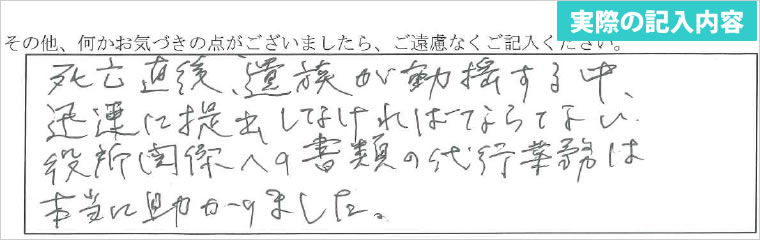 実際の記入内容
その他、何かお気づきの点がございましたら、ご遠慮なくご記入ください。
死亡直後、遺族が動揺する中、
迅速に提出しなければならない
役所関係への書類の代行業務は
本当に助かりました。